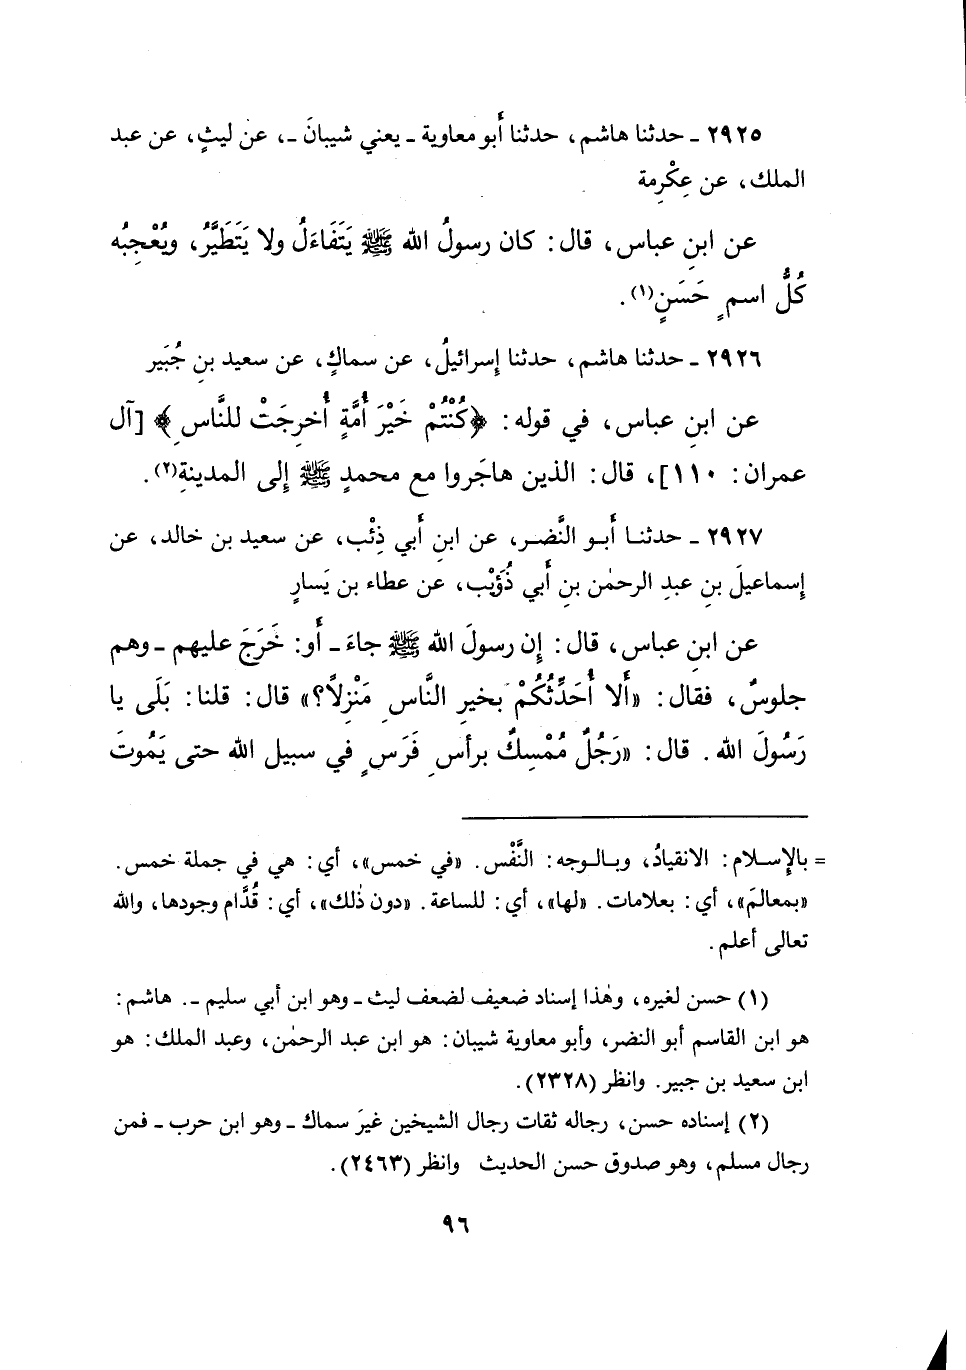 ٢٩٢٥ ـ حدثنا هاشم، حدثنا أَبو معاوية ـ يعني شيبانَ ـ، عن ليثٍ، عن عبد
الملك، عن عِكْرِمة
عن ابنِ عباس، قال: كان رسولُ الله ﷺ يَتَفَاءَلُ ولا يَتَطَيَّرُ، ويُعْجِبُه
كُلُّ اسمٍ حَسَنٍ(١).
٢٩٢٦ ـ حدثنا هاشم، حدثنا إِسرائيلُ، عن سماكٍ، عن سعيد بنِ جُبَير
عن ابنِ عباس، في قوله: ﴿كُنْتُمْ خَيْرَ أُمَّةٍ أُخرِجَتْ للنَّاسِ﴾ [آل
عمران: ١١٠]، قال: الذين هاجَروا مع محمدٍ ﷺ إِلى المدينةِ(٢).
٢٩٢٧ ـ حدثنا أَبو النَّضر، عن ابنِ أَبي ذِئْب، عن سعيد بن خالد، عن
إِسماعيلَ بنِ عبدِ الرحمٰن بنِ أَبي ذُؤَيْب، عن عطاء بن يَسارٍ
عن ابنِ عباس، قال: إِن رسولَ الله ﷺ جاءَ ـ أَو: خَرَجَ عليهم ـ وهم
جلوسٌ، فقال: «أَلا أُحَدِّثُكُمْ بخيرِ النَّاسِ مَنْزِلاً؟» قال: قلنا: بَلَى يا
رَسُولَ الله. قال: «رَجُلٌ مُمْسِكٌ برأْسِ فَرَسٍ في سبيل الله حتى يَمُوتَ
= بالإِسلام: الانقيادُ، وبالوجه: النَّفْس. «في خمس»، أي: هي في جملة خمس.
«بمعالمَ»، أي: بعلامات. «لها»، أي: للساعة. «دون ذٰلك»، أي: قُدَّام وجودها، والله
تعالى أعلم.
(١) حسن لغيره، وهٰذا إسناد ضعيف لضعف ليث ـ وهو ابن أبي سليم ـ. هاشم:
هو ابن القاسم أبو النضر، وأبو معاوية شيبان: هو ابن عبد الرحمٰن، وعبد الملك: هو
ابن سعيد بن جبير. وانظر (٢٣٢٨).
(٢) إسناده حسن، رجاله ثقات رجال الشيخين غيرَ سماك ـ وهو ابن حرب ـ فمن
رجال مسلم، وهو صدوق حسن الحديث وانظر (٢٤٦٣).
٩٦